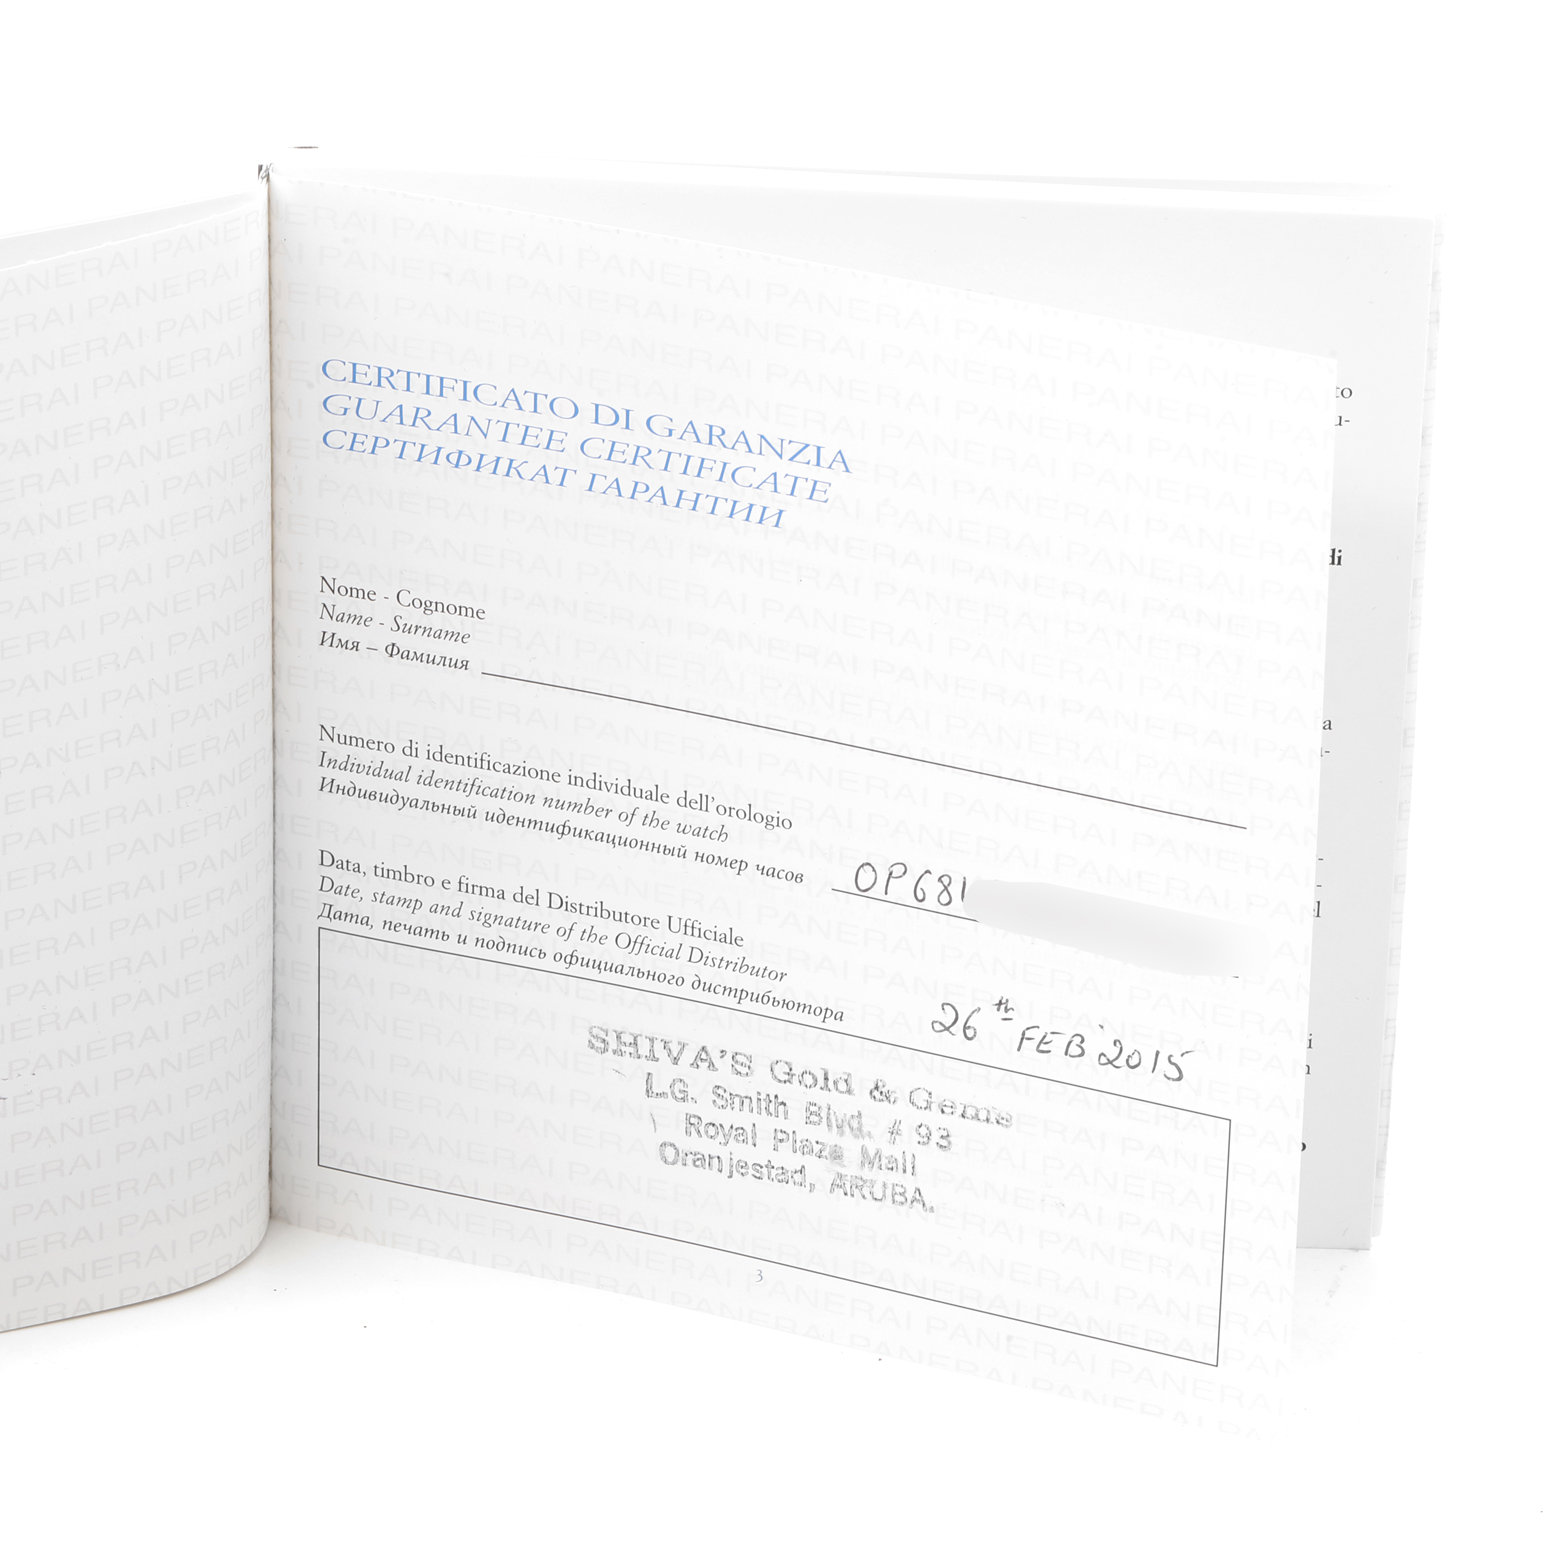 CERTIFICATO DI GARANZIA
GUARANTEE CERTIFICATE
СЕРТИФИКАТ ГАРАНТИИ
Nome - Cognome
Name - Surname
Имя – Фамилия
Numero di identificazione individuale dell'orologio
Individual identification number of the watch
Индивидуальный идентификационный номер часов OP681
Data, timbro e firma del Distributore Ufficiale
Date, stamp and signature of the Official Distributor
Дата, печать и подпись официального дистрибьютора
26th FEB 2015
SHIVA'S Gold & Gems
L.G. Smith Blvd. # 93
Royal Plaza Mall
Oranjestad, ARUBA.
3